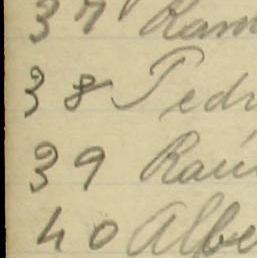 37 Ram
38 Pedr
39 Raú
40 Albe